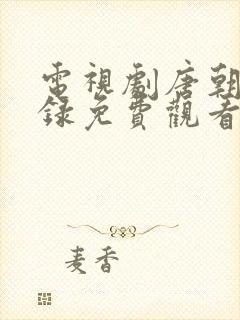 電視劇唐朝
録免費觀看
麦香